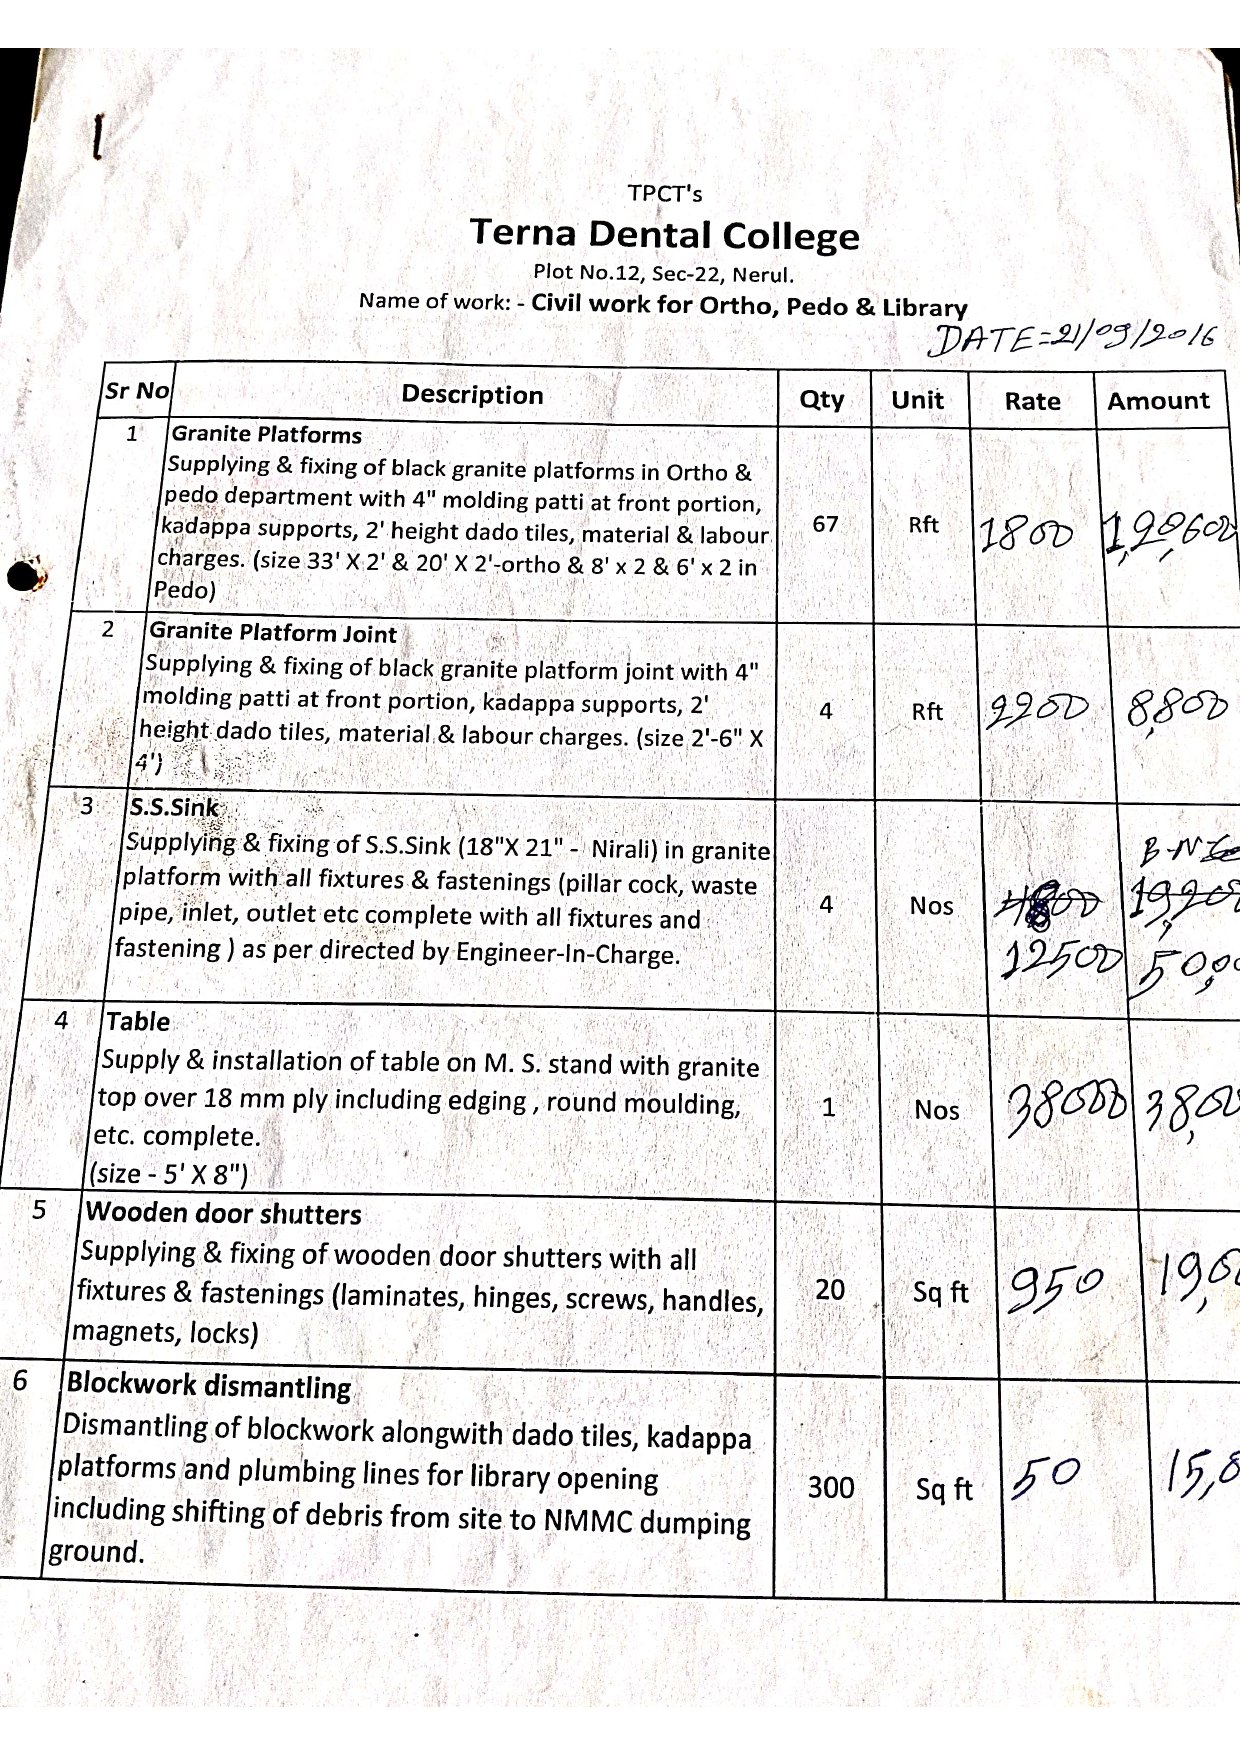 TPCT's
Terna Dental College
Plot No.12, Sec-22, Nerul.
Name of work: - Civil work for Ortho, Pedo & Library
DATE=21/09/2016
Sr No Description Qty Unit Rate Amount
1 Granite Platforms
Supplying & fixing of black granite platforms in Ortho &
pedo department with 4" molding patti at front portion,
kadappa supports, 2' height dado tiles, material & labour 67 Rft 1800 1,20,600
charges. (size 33' X 2' & 20' X 2'-ortho & 8' x 2 & 6' x 2 in
Pedo)
2 Granite Platform Joint
Supplying & fixing of black granite platform joint with 4"
molding patti at front portion, kadappa supports, 2' 4 Rft 2200 8,800
height dado tiles, material & labour charges. (size 2'-6" X
4')
3 S.S.Sink
Supplying & fixing of S.S.Sink (18"X 21" - Nirali) in granite
platform with all fixtures & fastenings (pillar cock, waste
pipe, inlet, outlet etc complete with all fixtures and 4 Nos 4800 19,200
fastening ) as per directed by Engineer-In-Charge. 12500 50,00
4 Table
Supply & installation of table on M. S. stand with granite
top over 18 mm ply including edging , round moulding, 1 Nos 38000 38,00
etc. complete.
(size - 5' X 8")
5 Wooden door shutters
Supplying & fixing of wooden door shutters with all
fixtures & fastenings (laminates, hinges, screws, handles, 20 Sq ft 950 19,0
magnets, locks)
6 Blockwork dismantling
Dismantling of blockwork alongwith dado tiles, kadappa
platforms and plumbing lines for library opening 300 Sq ft 50 15,0
including shifting of debris from site to NMMC dumping
ground.